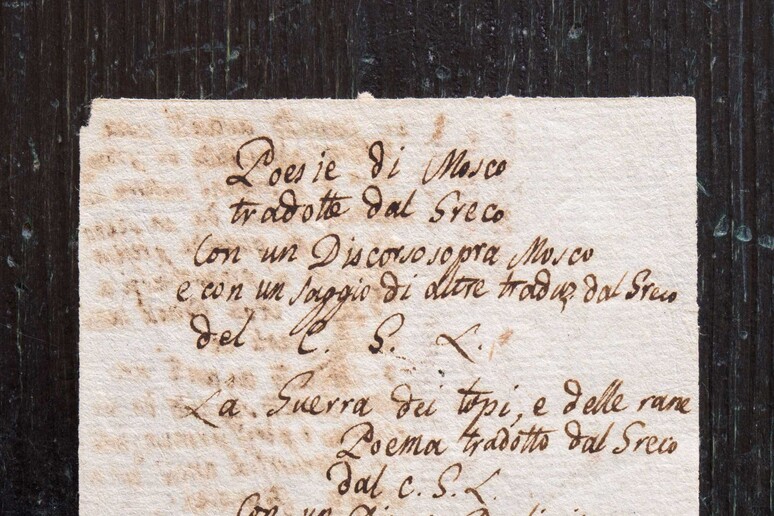 Poesie di Mosco
tradotte dal Greco
Con un Discorso sopra Mosco
e con un saggio di altre traduz. dal Greco
del C. G. L.
La Guerra dei topi, e delle rane
Poema tradotto dal Greco
dal C. G. L.
Con un